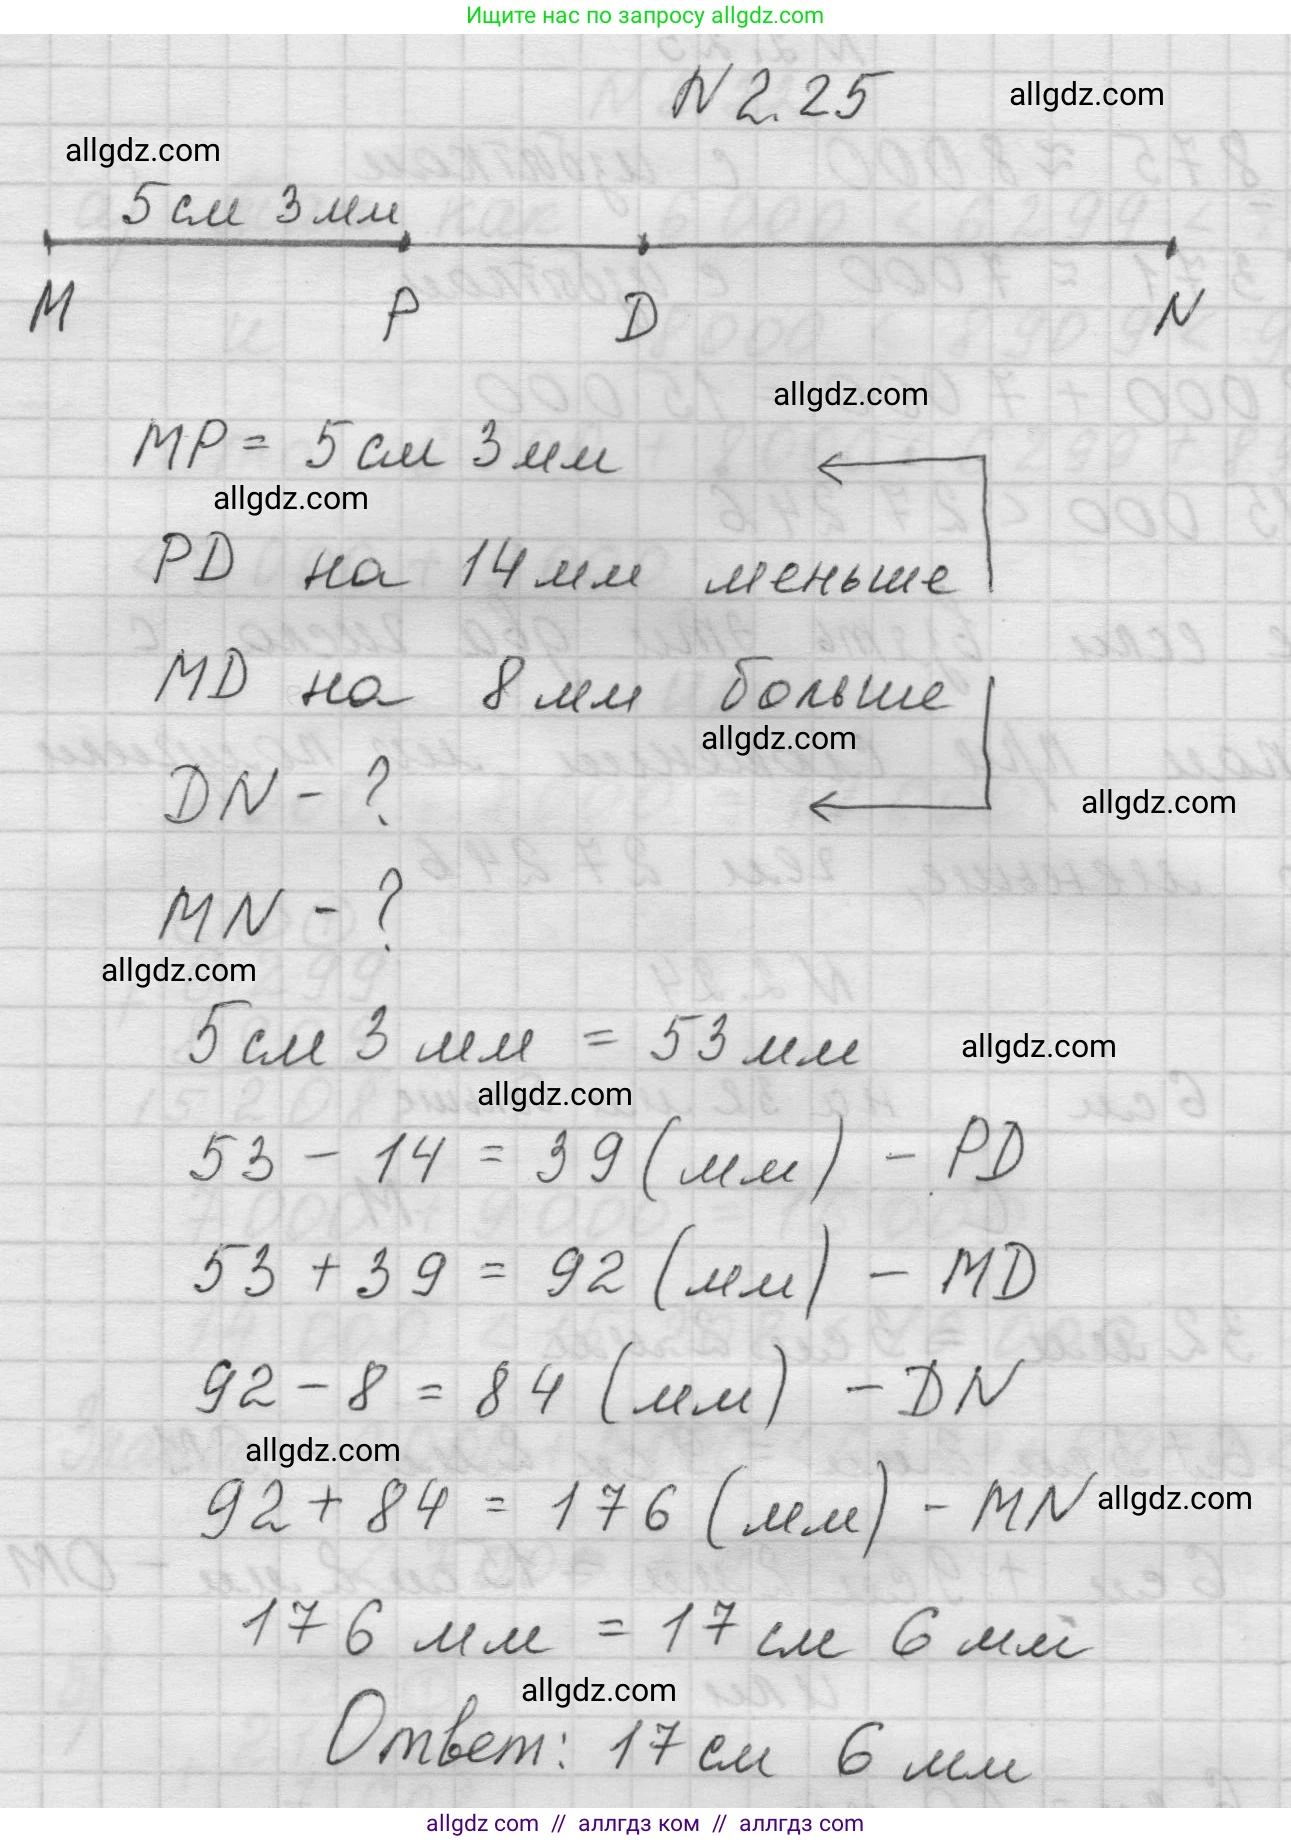 Ищите нас по запросу allgdz.com
N 2.25
allgdz.com
allgdz.com
5 см 3 мм
M P D N
allgdz.com
MP = 5 см 3 мм
allgdz.com
PD на 14 мм меньше
MD на 8 мм больше
allgdz.com
DN - ?
allgdz.com
MN - ?
allgdz.com
5 см 3 мм = 53 мм
allgdz.com
allgdz.com
53 - 14 = 39 (мм) - PD
53 + 39 = 92 (мм) - MD
92 - 8 = 84 (мм) - DN
allgdz.com
92 + 84 = 176 (мм) - MN
allgdz.com
176 мм = 17 см 6 мм
allgdz.com
Ответ: 17 см 6 мм
allgdz.com // аллгдз ком // аллгдз.com